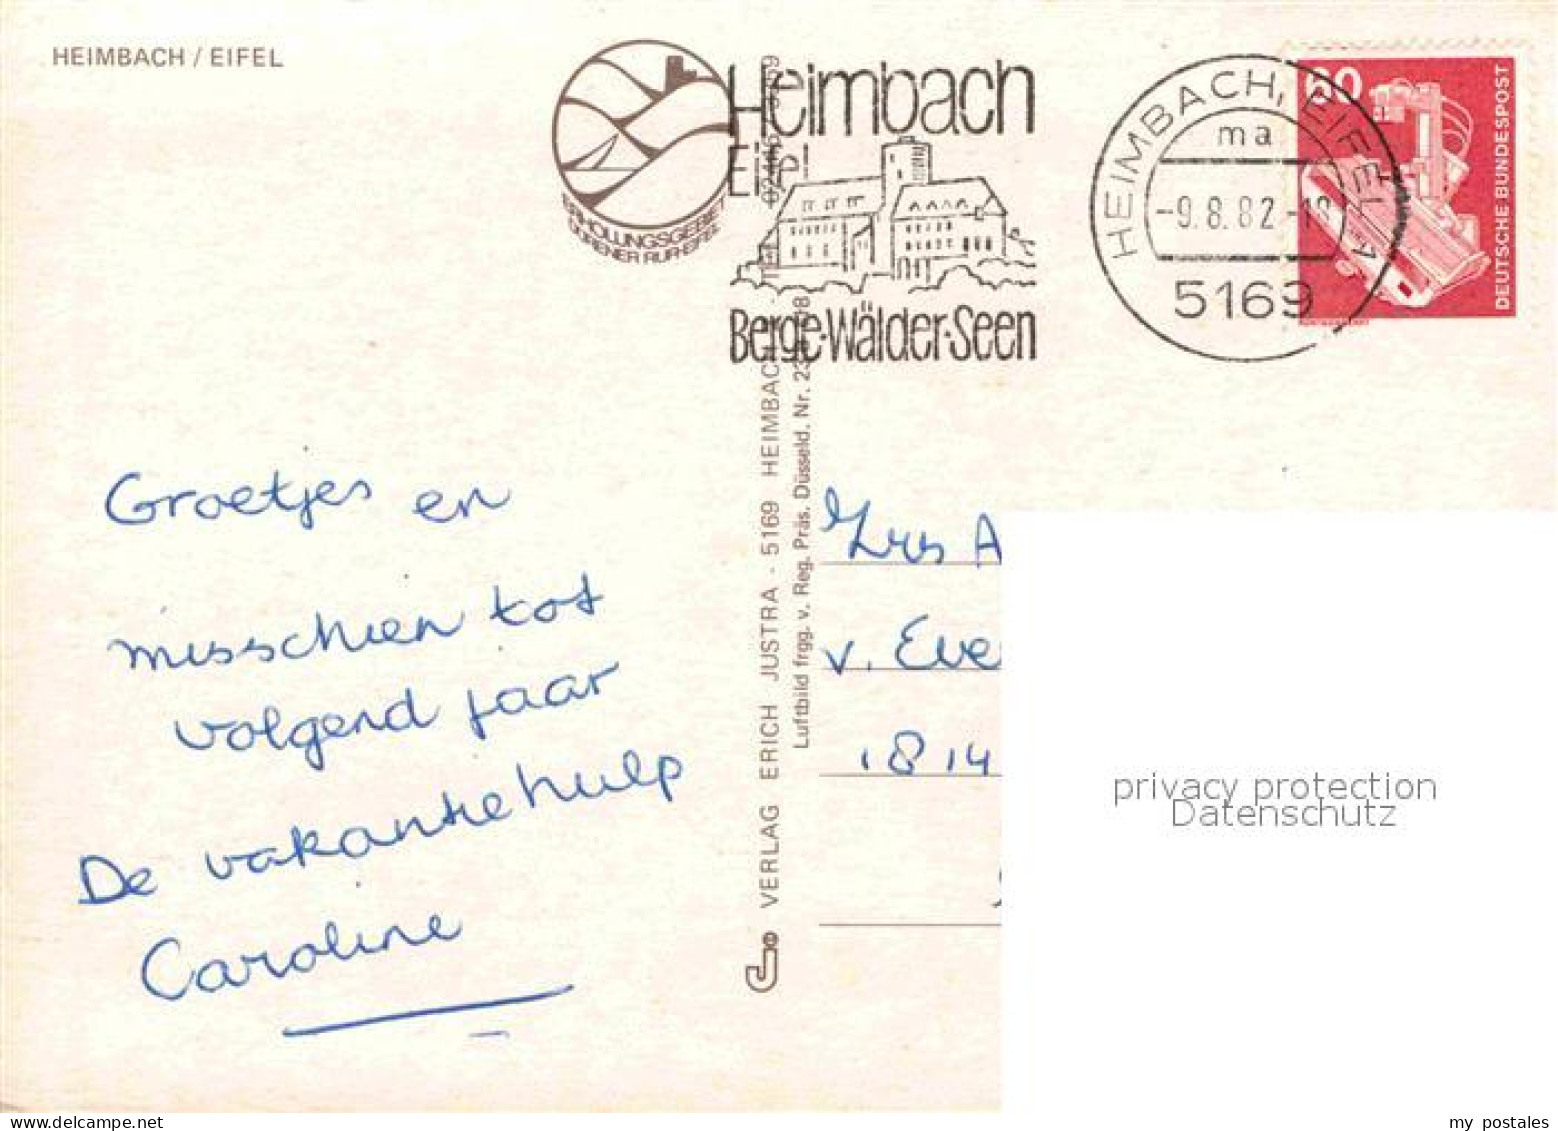 HEIMBACH / EIFEL
ERHOLUNGSGEBIET
DÜRENER RUR-EIFEL
Heimbach
Eifel
Berge·Wälder·Seen
HEIMBACH, EIFEL 1
ma
-9.8.82-18
5169
60
DEUTSCHE BUNDESPOST
Groetjes en
misschien tot
volgend jaar
De vakantiehulp
Caroline
VERLAG ERICH JUSTRA - 5169 HEIMBACH
Luftbild frgg. v. Reg. Präs. Düsseld. Nr.
A
v. Eve
1814
privacy protection
Datenschutz
my postales